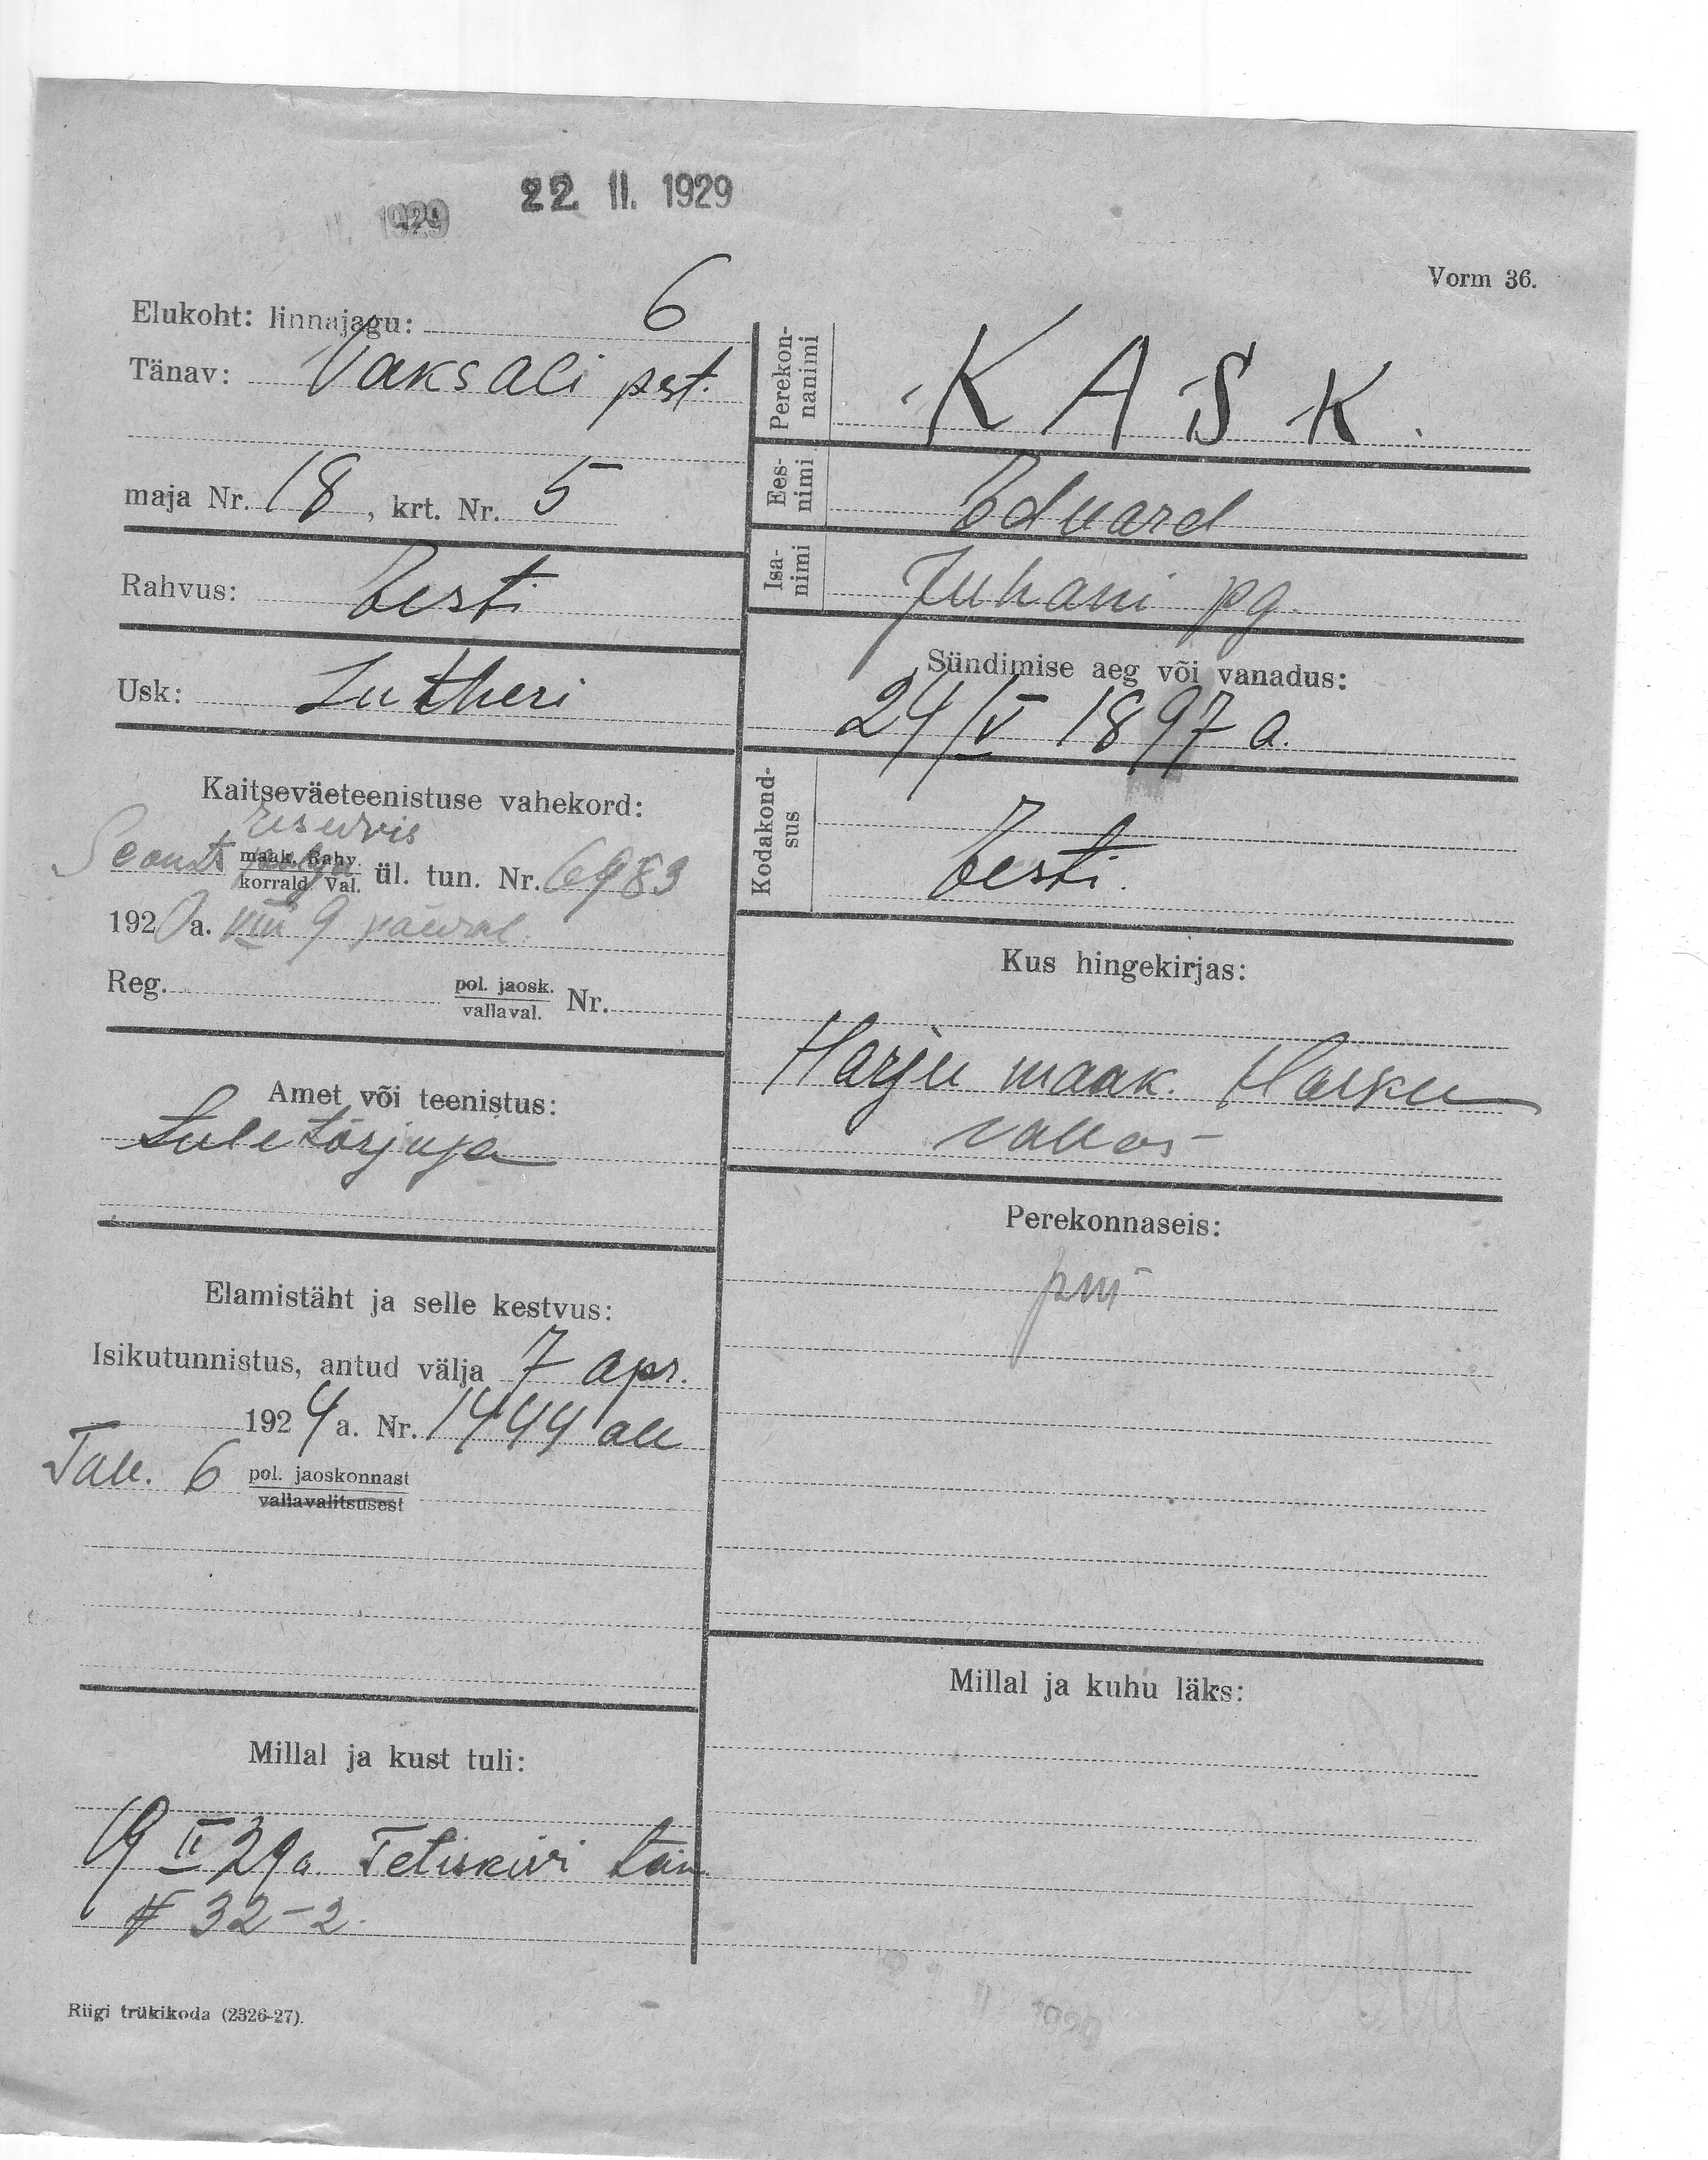 22 II. 1929
II. 1929
Vorm 36.
Elukoht: linnajagu: 6
Tänav: Vaksali pst.
maja Nr. 18, krt. Nr. 5
Rahvus: Eesti
Usk: Lutheri
Kaitseväeteenistuse vahekord:
reservis
maak. Rahv.
korrald. Val. ül. tun. Nr. 6983
1920 a. VIII 9 päeval
Reg. pol. jaosk.
vallaval. Nr.
Amet või teenistus:
Tuletõrjuja
Elamistäht ja selle kestvus:
Isikutunnistus, antud välja 7 apr.
1924 a. Nr. 1444 all
Tall. 6 pol. jaoskonnast
vallavalitsusest
Millal ja kust tuli:
19 II 29 a. Teliskivi tän.
# 32-2.
Riigi trükikoda (2326-27).
Perekon-
nanimi
KASK.
Ees-
nimi
Eduard
Isa-
nimi
Juhani pg.
Sündimise aeg või vanadus:
24/V 1897 a.
Kodakond-
sus
Eesti.
Kus hingekirjas:
Harju maak. Harku
vallas
Perekonnaseis:
Millal ja kuhu läks: